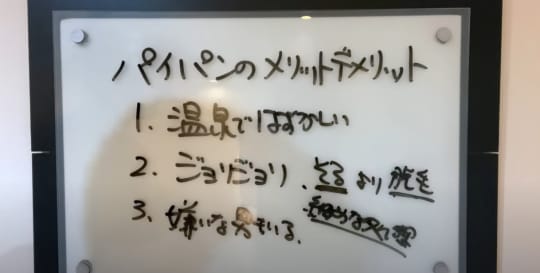 パイパンのメリットデメリット
1. 温泉ではずかしい
2. ジョリジョリ、そるより脱毛
3. 嫌いな男もいる、